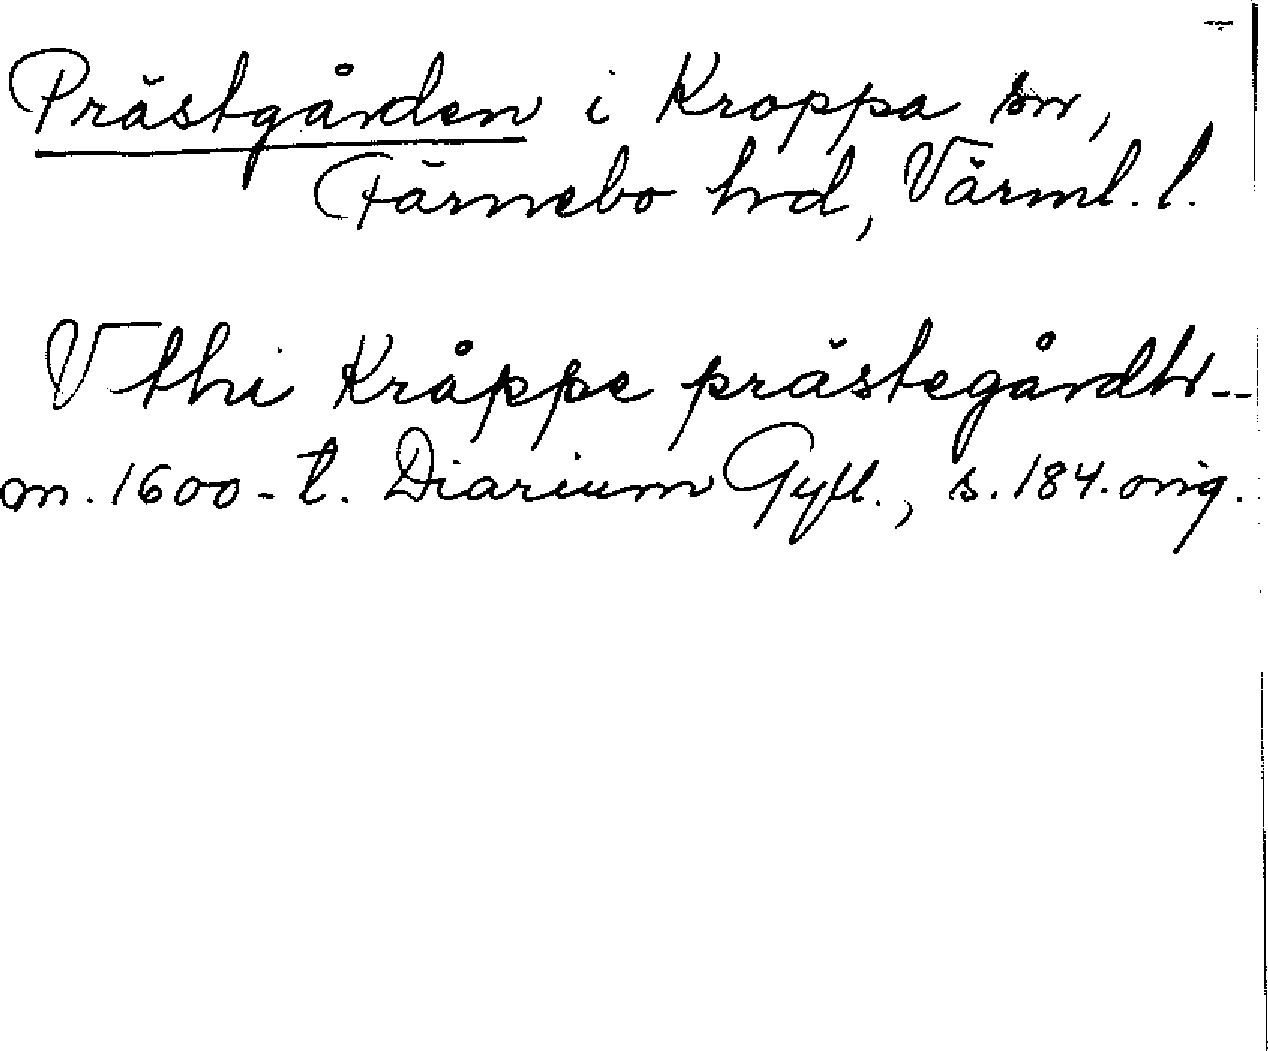 Prästgården i Kroppa sn,
Färnebo hd, Värml. l.
Vthi Kråppe prästegårdh--
m. 1600-t. Diarium Gyll., s. 184. orig.